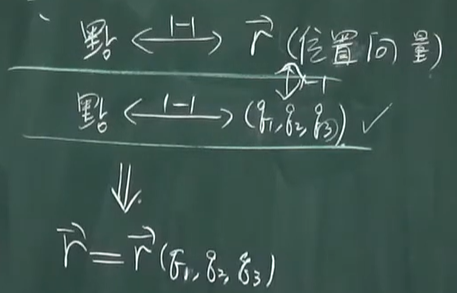 點 ⟷ 1-1 r⃗ (位置向量)
1-1
點 ⟷ 1-1 (q₁, q₂, q₃) ✓
⇓
r⃗ = r⃗ (q₁, q₂, q₃)